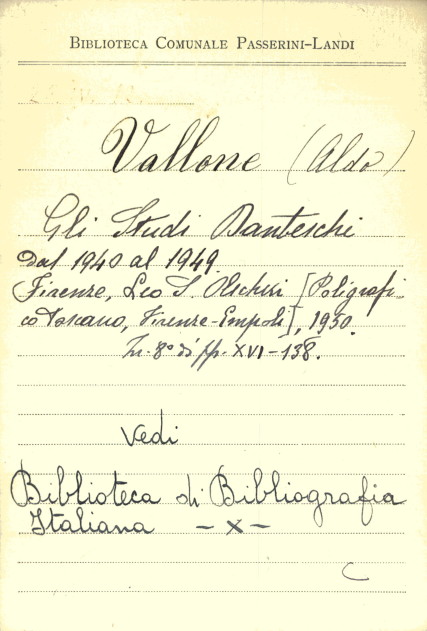 BIBLIOTECA COMUNALE PASSERINI-LANDI
Vallone (Aldo)
Gli Studi Danteschi
dal 1940 al 1949.
Firenze, Leo S. Olschki [Poligrafi-
co Toscano, Firenze-Empoli], 1950.
In. 8° di pp. XVI-138.
Vedi
Biblioteca di Bibliografia
Italiana - X -
C